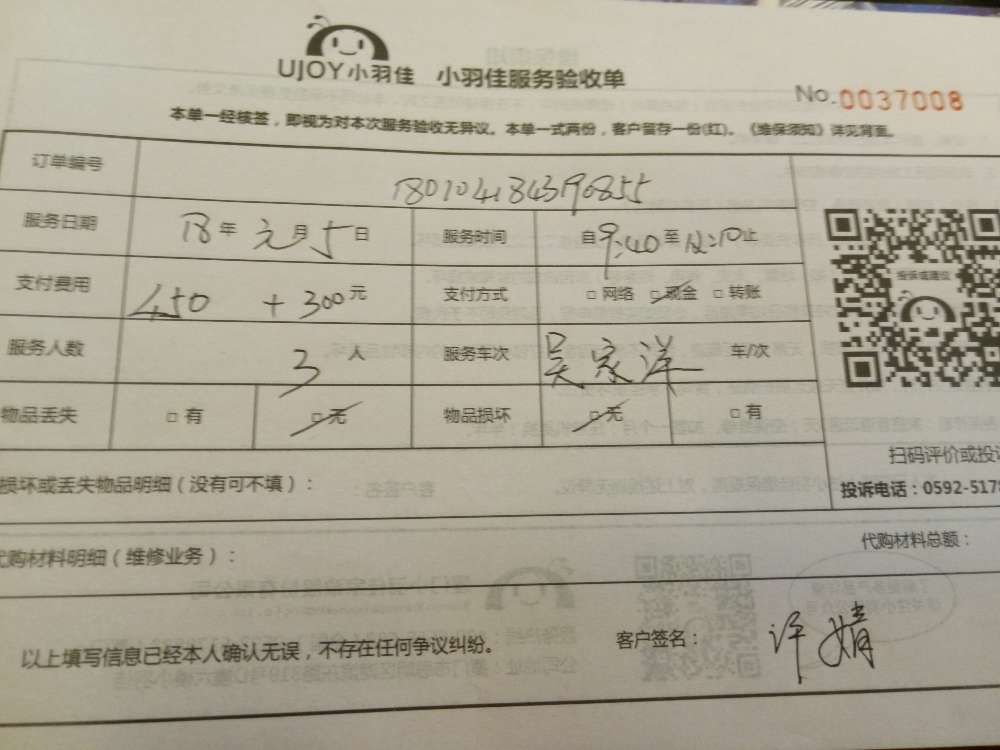 UJOY小羽佳 小羽佳服务验收单
No.0037008
本单一经核签，即视为对本次服务验收无异议。本单一式两份，客户留存一份(红)。《维保须知》详见背面。
订单编号 180104184390855
服务日期 18年元月5日 服务时间 自9:40至12:10止
支付费用 450 + 300元 支付方式 □网络 □现金 □转账
服务人数 3人 服务车次 吴家洋 车/次
物品丢失 □有 □无 物品损坏 □无 □有
扫码评价或投诉
投诉电话：0592-5178
损坏或丢失物品明细（没有可不填）：
代购材料明细（维修业务）： 代购材料总额：
以上填写信息已经本人确认无误，不存在任何争议纠纷。 客户签名： 许婧